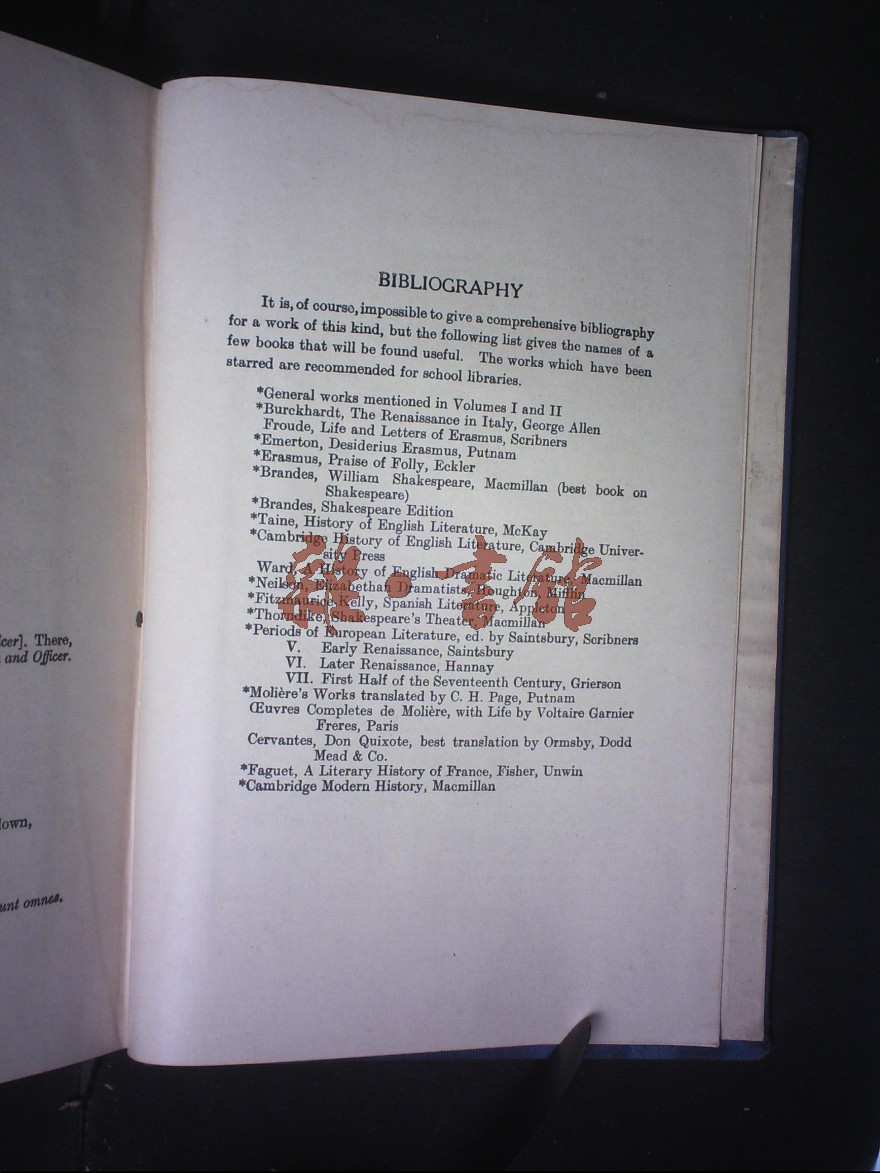 icer]. There,
and Officer.
lown,
unt omnes.
BIBLIOGRAPHY
It is, of course, impossible to give a comprehensive bibliography
for a work of this kind, but the following list gives the names of a
few books that will be found useful. The works which have been
starred are recommended for school libraries.
*General works mentioned in Volumes I and II
*Burckhardt, The Renaissance in Italy, George Allen
Froude, Life and Letters of Erasmus, Scribners
*Emerton, Desiderius Erasmus, Putnam
*Erasmus, Praise of Folly, Eckler
*Brandes, William Shakespeare, Macmillan (best book on
Shakespeare)
*Brandes, Shakespeare Edition
*Taine, History of English Literature, McKay
*Cambridge History of English Literature, Cambridge Univer-
sity Press
Ward, A History of English Dramatic Literature, Macmillan
*Neilson, Elizabethan Dramatists, Houghton, Mifflin
*Fitzmaurice-Kelly, Spanish Literature, Appleton
*Thorndike, Shakespeare's Theater, Macmillan
*Periods of European Literature, ed. by Saintsbury, Scribners
V. Early Renaissance, Saintsbury
VI. Later Renaissance, Hannay
VII. First Half of the Seventeenth Century, Grierson
*Molière's Works translated by C. H. Page, Putnam
Œuvres Completes de Molière, with Life by Voltaire Garnier
Freres, Paris
Cervantes, Don Quixote, best translation by Ormsby, Dodd
Mead & Co.
*Faguet, A Literary History of France, Fisher, Unwin
*Cambridge Modern History, Macmillan
雜·書館